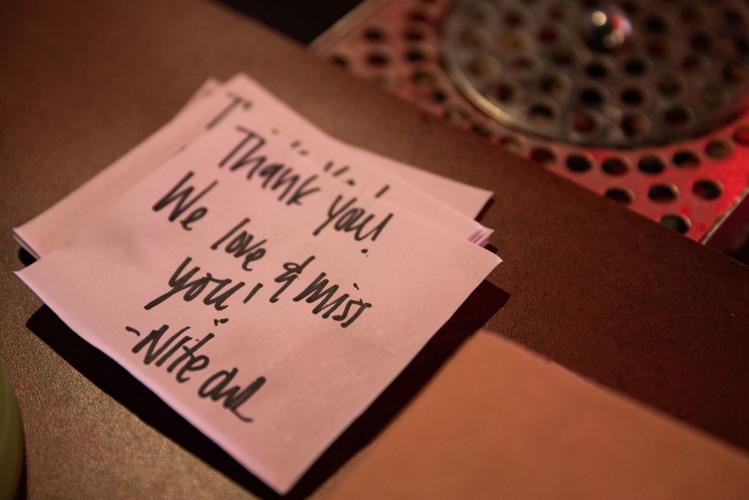 T
Thank you!
We love & miss
you!
-Nite owl